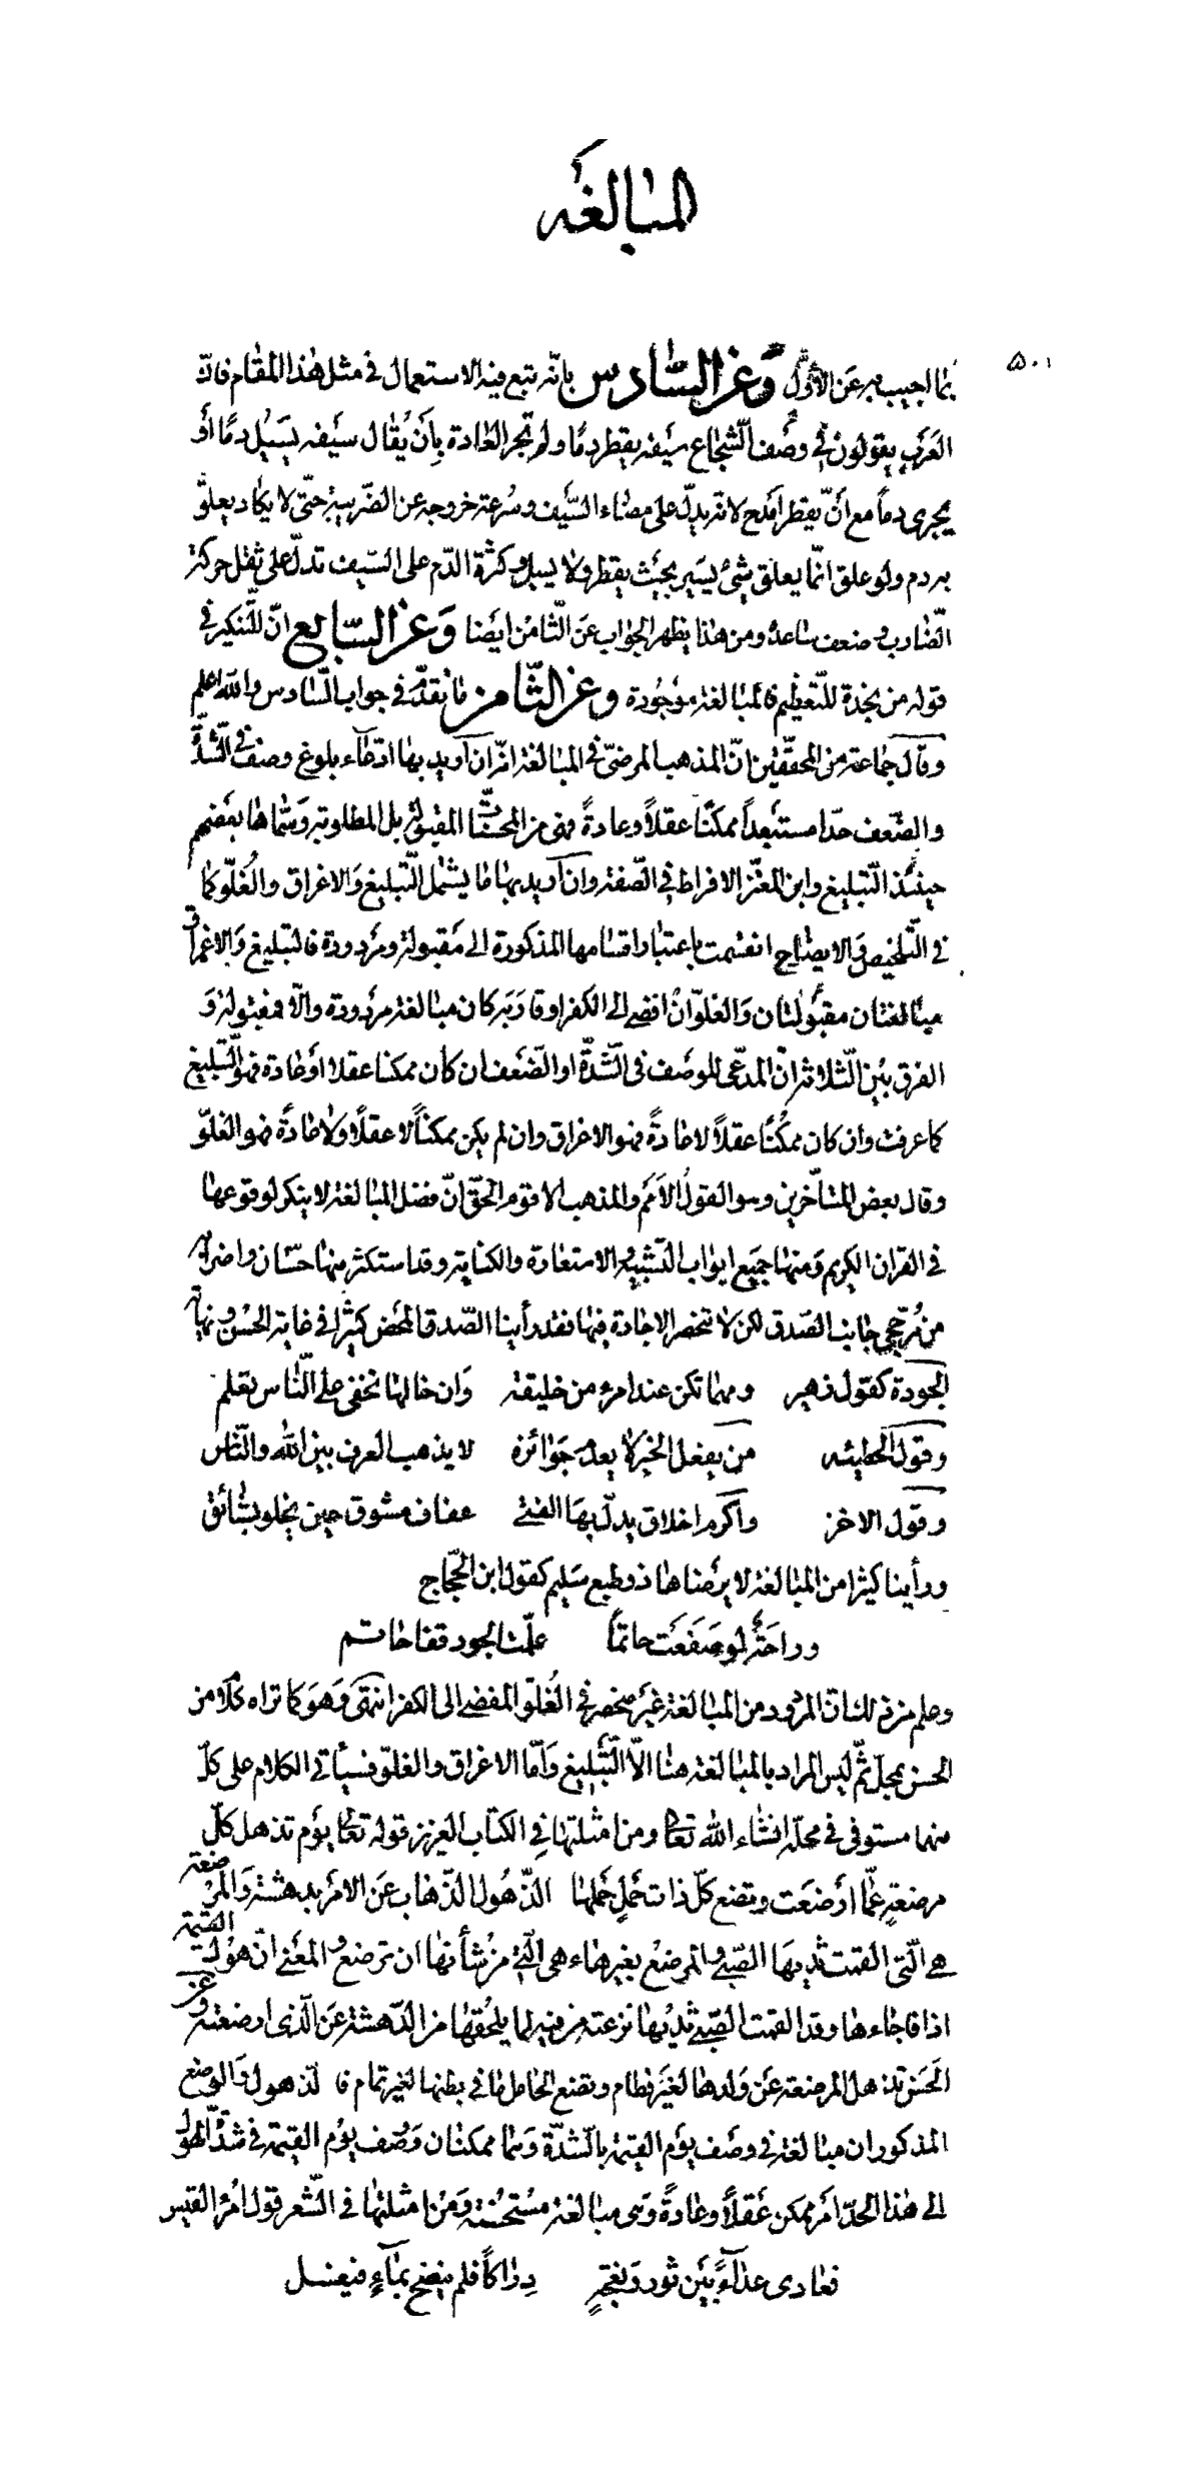 المبالغة
٥٠١
بما اجيب به عن الأول وعن السّادس بانّه تبع فيه الاستعمال فى مثل هذا المقام فانّ
العرب يقولون فى وصف الشّجاع سيفه يقطر دمًا ولم تجر العادة بأن يُقال سيفه يسيل دمًا أو
يجرى دماً مع أنّ يقطر امدح لانّه يدلّ على مضاء السّيف وسُرعة خروجه عن الضّريبة حتّى لا يكاد يعلق
به دم ولو علق انّما يعلق شئ يسير بحيث يقطر ولا يسيل وكثرة الدّم على السّيف تدلّ على ثقل حركة
الضّارب وضعف ساعده ومن هذا يظهر الجواب عن الثّامن ايضا وَعن السّابع انّ للتّنكير فى
قوله من نجدة للتّعظيم فالمبالغة موجُودة وعن الثّامن ما تقدّم فى جواب السّادس والله اعلم
وقال جماعة من المحقّقين انّ المذهب المرضىّ فى المبالغة انّه ان اريد بها ادّعاء بلوغ وصف فى الشّدّة
والضّعف حدّا مستبعداً ممكنًا عقلاً وعادةً فهى من المحسّنات المقبولة بل المطلوبة وسمّاها بعضهم
حينئذ التّبليغ وابن المعتزّ الافراط فى الصّفة وان اريد بها ما يشمل التّبليغ والاغراق والغُلّو كما
فى التّلخيص والايضاح انقسمت باعتبار اقسامها المذكورة الى مَقبولة ومَردودة فالتبليغ والاغراق
مبالغتان مقبُولتان وَالغلوّ انْ افضى الى الكفر او قاربَه كان مبالغة مردودة والّا فمقبولة وَ
الفرق بين الثّلاثة انّ المدّعى للوصف فى الشّدّة او الضّعف ان كان ممكنا عقلا أو عادة فهو التّبليغ
كما عرفت وان كان ممكنًا عقلاً لا عادةً فهو الاغراق وان لم يكن ممكناً لا عقلاً ولا عادةً فهو الغلوّ
وقال بعض المتأخّرين وهو القول الأمَم والمذهب الاقوم الحقّ انّ فضل المبالغة لا ينكر لوقوعها
فى القران الكريم وَمنها جميع ابواب التّشبيه والاستعارة والكناية وقد استكثر منها حسّان واضرابه
من مُرجّحى جانب الصّدق لكن لا تنحصر الاجادة فيها فقد رأينا الصّدق المحض كثيرا فى غاية الحُسن ونهاية
الجودة كقول زهير ومهما تكن عند امرء من خليقة وَان خالها تخفى على النّاس تعلم
وقول الحطيئه من يفعل الخير لا يعدم جَوائزه لا يذهب العرف بين الله والنّاس
وقول الاخر واكرم اخلاق يدلّ بها الفتى عفاف مشوق حين يخلو بشائق
ورأينا كثيرا من المبالغة لا يرضاها ذو طبع سليم كقول ابن الحجّاج
وراحَةٌ لو صَفَعَت حاتمًا علّمت الجود قفا حاتم
وعلم من ذلك انّ المردود من المبالغة غير منحصر فى الغُلوّ المفضى الى الكفر انتهى وَهوَ كما تراه كلام من
الحسن بمحلّ ثمّ ليس المراد بالمبالغة هنا الّا التّبليغ وَأمّا الاغراق والغلوّ فسيأتى الكلام على كلّ
منهما مستوفى فى محلّه انشاء الله تعالى ومن امثلتها فى الكتاب العزيز قوله تعالى يؤم تذهل كلّ
مرضعةٍ عمّا أرضَعَت وتضع كلّ ذات حَملٍ حَملها الذّهُول الذّهاب عَن الامر بدهشة وَالمرضعة
هى الّتى القمت ثديها الصّبى والمرضع بغير هاء هى الّتى من شأنها ان ترضع والمعنى انّ هول القيمة
اذا فاجاءها وقد القمت الصّبى ثديها نزعته من فيه لما يلحقها من الدّهشة عَن الّذى ارضعته وعن
الحَسَن تذهل المرضعة عَن وَلدها لغير فطام وتضع الحامل ما فى بطنها لغير تمام فالذهول وَالوضع
المذكوران مبالغة فى وصف يوم القيمة بالشّدّة وَهما ممكنان وَصف يوم القيمة فى شدّة الهول
الى هذا الحدّ أمر ممكن عَقلاً وعادةً وَهى مبالغة مُستحسنة وَمن امثلتها فى الشّعر قول امرُء القيس
فعادى عداءً بَيَن ثور وَنعجةٍ دِراكاً فلم ينضح بماءٍ فيغسل